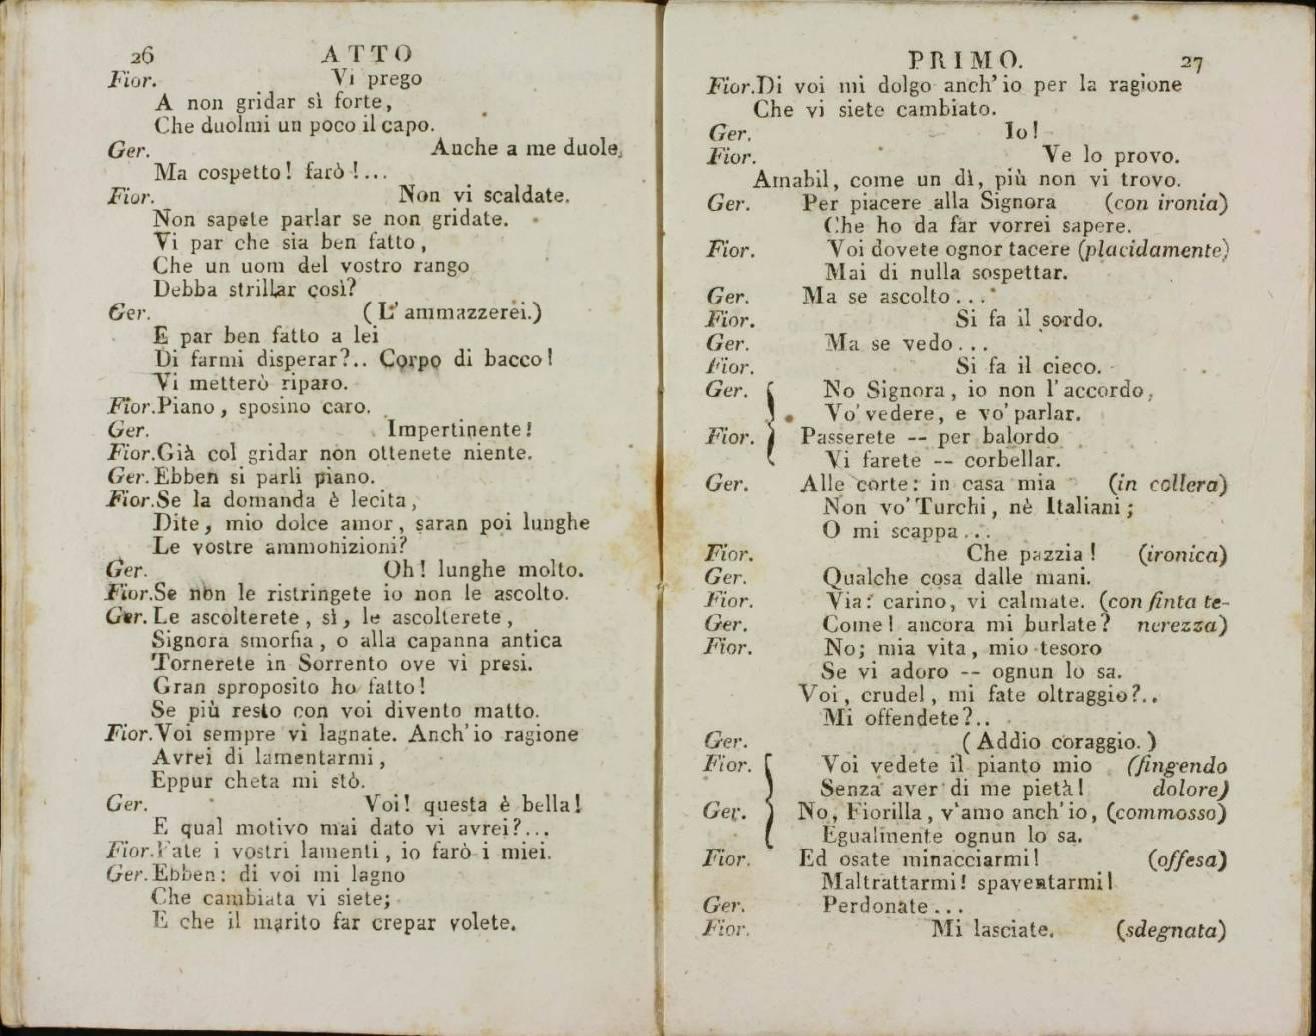 26 ATTO
Fior. Vi prego
A non gridar sì forte,
Che duolmi un poco il capo.
Ger. Anche a me duole,
Ma cospetto! farò!...
Fior. Non vi scaldate.
Non sapete parlar se non gridate.
Vi par che sia ben fatto,
Che un uom del vostro rango
Debba strillar così?
Ger. (L'ammazzerei.)
E par ben fatto a lei
Di farmi disperar?.. Corpo di bacco!
Vi metterò riparo.
Fior. Piano, sposino caro.
Ger. Impertinente!
Fior. Già col gridar non ottenete niente.
Ger. Ebben si parli piano.
Fior. Se la domanda è lecita,
Dite, mio dolce amor, saran poi lunghe
Le vostre ammonizioni?
Ger. Oh! lunghe molto.
Fior. Se non le ristringete io non le ascolto.
Ger. Le ascolterete, sì, le ascolterete,
Signora smorfia, o alla capanna antica
Tornerete in Sorrento ove vi presi.
Gran sproposito ho fatto!
Se più resto con voi divento matto.
Fior. Voi sempre vi lagnate. Anch'io ragione
Avrei di lamentarmi,
Eppur cheta mi stò.
Ger. Voi! questa è bella!
E qual motivo mai dato vi avrei?...
Fior. Fate i vostri lamenti, io farò i miei.
Ger. Ebben: di voi mi lagno
Che cambiata vi siete;
E che il marito far crepar volete.
PRIMO. 27
Fior. Di voi mi dolgo anch'io per la ragione
Che vi siete cambiato.
Ger. Io!
Fior. Ve lo provo.
Amabil, come un dì, più non vi trovo.
Ger. Per piacere alla Signora (con ironia)
Che ho da far vorrei sapere.
Fior. Voi dovete ognor tacere (placidamente)
Mai di nulla sospettar.
Ger. Ma se ascolto...
Fior. Si fa il sordo.
Ger. Ma se vedo...
Fior. Si fa il cieco.
Ger. No Signora, io non l'accordo,
Vo' vedere, e vo' parlar.
Fior. Passerete -- per balordo
Vi farete -- corbellar.
Ger. Alle corte: in casa mia (in collera)
Non vo' Turchi, nè Italiani;
O mi scappa...
Fior. Che pazzia! (ironica)
Ger. Qualche cosa dalle mani.
Fior. Via: carino, vi calmate. (con finta te-
Ger. Come! ancora mi burlate? nerezza)
Fior. No; mia vita, mio tesoro
Se vi adoro -- ognun lo sa.
Voi, crudel, mi fate oltraggio?..
Mi offendete?..
Ger. (Addio coraggio.)
Fior. Voi vedete il pianto mio (fingendo
Senza aver di me pietà! dolore)
Ger. No, Fiorilla, v'amo anch'io, (commosso)
Egualmente ognun lo sa.
Fior. Ed osate minacciarmi! (offesa)
Maltrattarmi! spaventarmi!
Ger. Perdonate...
Fior. Mi lasciate. (sdegnata)